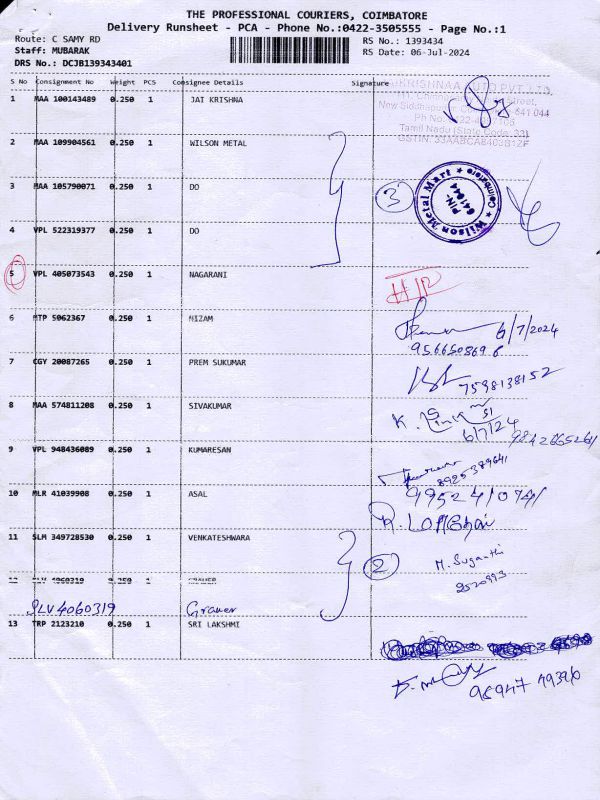 THE PROFESSIONAL COURIERS, COIMBATORE
Delivery Runsheet - PCA - Phone No.:0422-3505555 - Page No.:1
Route: C SAMY RD
RS No.: 1393434
Staff: MUBARAK
RS Date: 06-Jul-2024
DRS No.: DCJB139343401
S No Consignment No Weight PCS Consignee Details Signature
1 MAA 100143489 0.250 1 JAI KRISHNA
641 044
Tamil Nadu (State Code: 33)
2 MAA 109904561 0.250 1 WILSON METAL
3 MAA 105790071 0.250 1 DO
3
Wilson Metal Mart ★ Coimbatore ★
PIN-
641044
4 VPL 522319377 0.250 1 DO
5 VPL 405073543 0.250 1 NAGARANI
6 MTP 5062367 0.250 1 NIZAM
6/7/2024
9566508696
7 CGY 20087265 0.250 1 PREM SUKUMAR
7598138152
8 MAA 574811208 0.250 1 SIVAKUMAR
6/7/24
9 VPL 948436089 0.250 1 KUMARESAN
8925389641
10 MLR 41039908 0.250 1 ASAL
11 SLM 349728530 0.250 1 VENKATESHWARA
2
M. Suganthi
12 SLV 4060319 0.250 1
SLV 4060319
13 TRP 2123210 0.250 1 SRI LAKSHMI